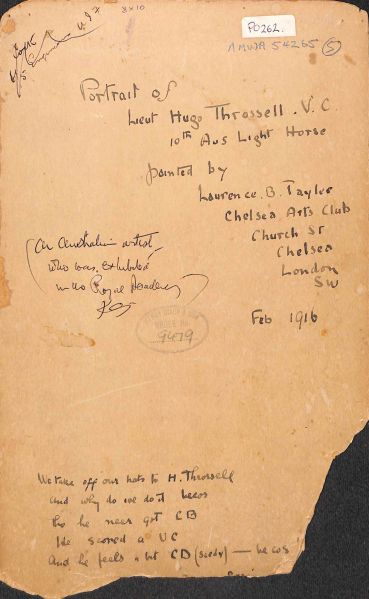 8x10
PD262.
AMWA 54265 (5)
Portrait of
Lieut Hugo Throssell. V.C.
10th Aus Light Horse
painted by
Laurence. B. Tayler
Chelsea Arts Club
Church St
Chelsea
London
SW
Feb 1916
(An Australian artist
who was exhibited
in the Royal Academy)
9479
We take off our hats to H. Throssell
And why do we do it becos
Tho he neer got CB
He scored a VC
And he feels a bit CD (seedy) — becos